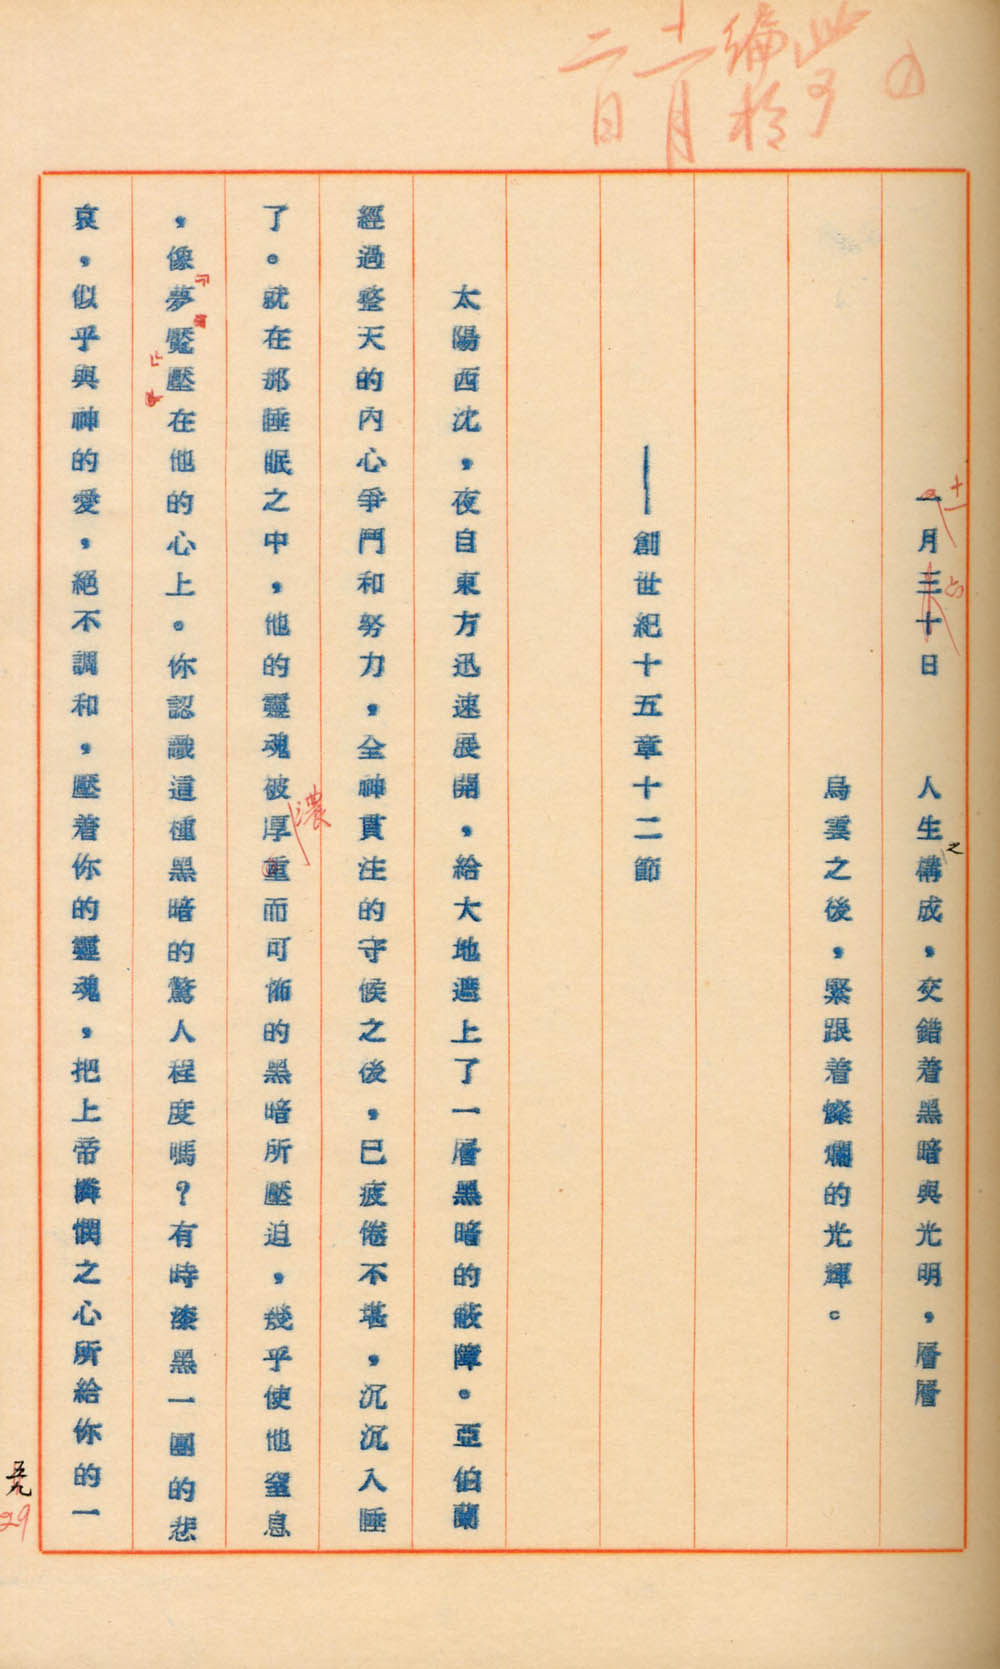 此可
編於
十一月
二日
十一
六
一月三十日　人生構成，交錯着黑暗與光明，層層
之
烏雲之後，緊跟着燦爛的光輝。
——創世紀十五章十二節
太陽西沈，夜自東方迅速展開，給大地遮上了一層黑暗的蔽障。亞伯蘭
經過整天的內心爭鬥和努力，全神貫注的守候之後，已疲倦不堪，沉沉入睡
了。就在那睡眠之中，他的靈魂被厚重而可怖的黑暗所壓迫，幾乎使他窒息
濃
，像夢魘壓在他的心上。你認識這種黑暗的驚人程度嗎？有時漆黑一團的悲
哀，似乎與神的愛，絕不調和，壓着你的靈魂，把上帝憐憫之心所給你的一
五九
29